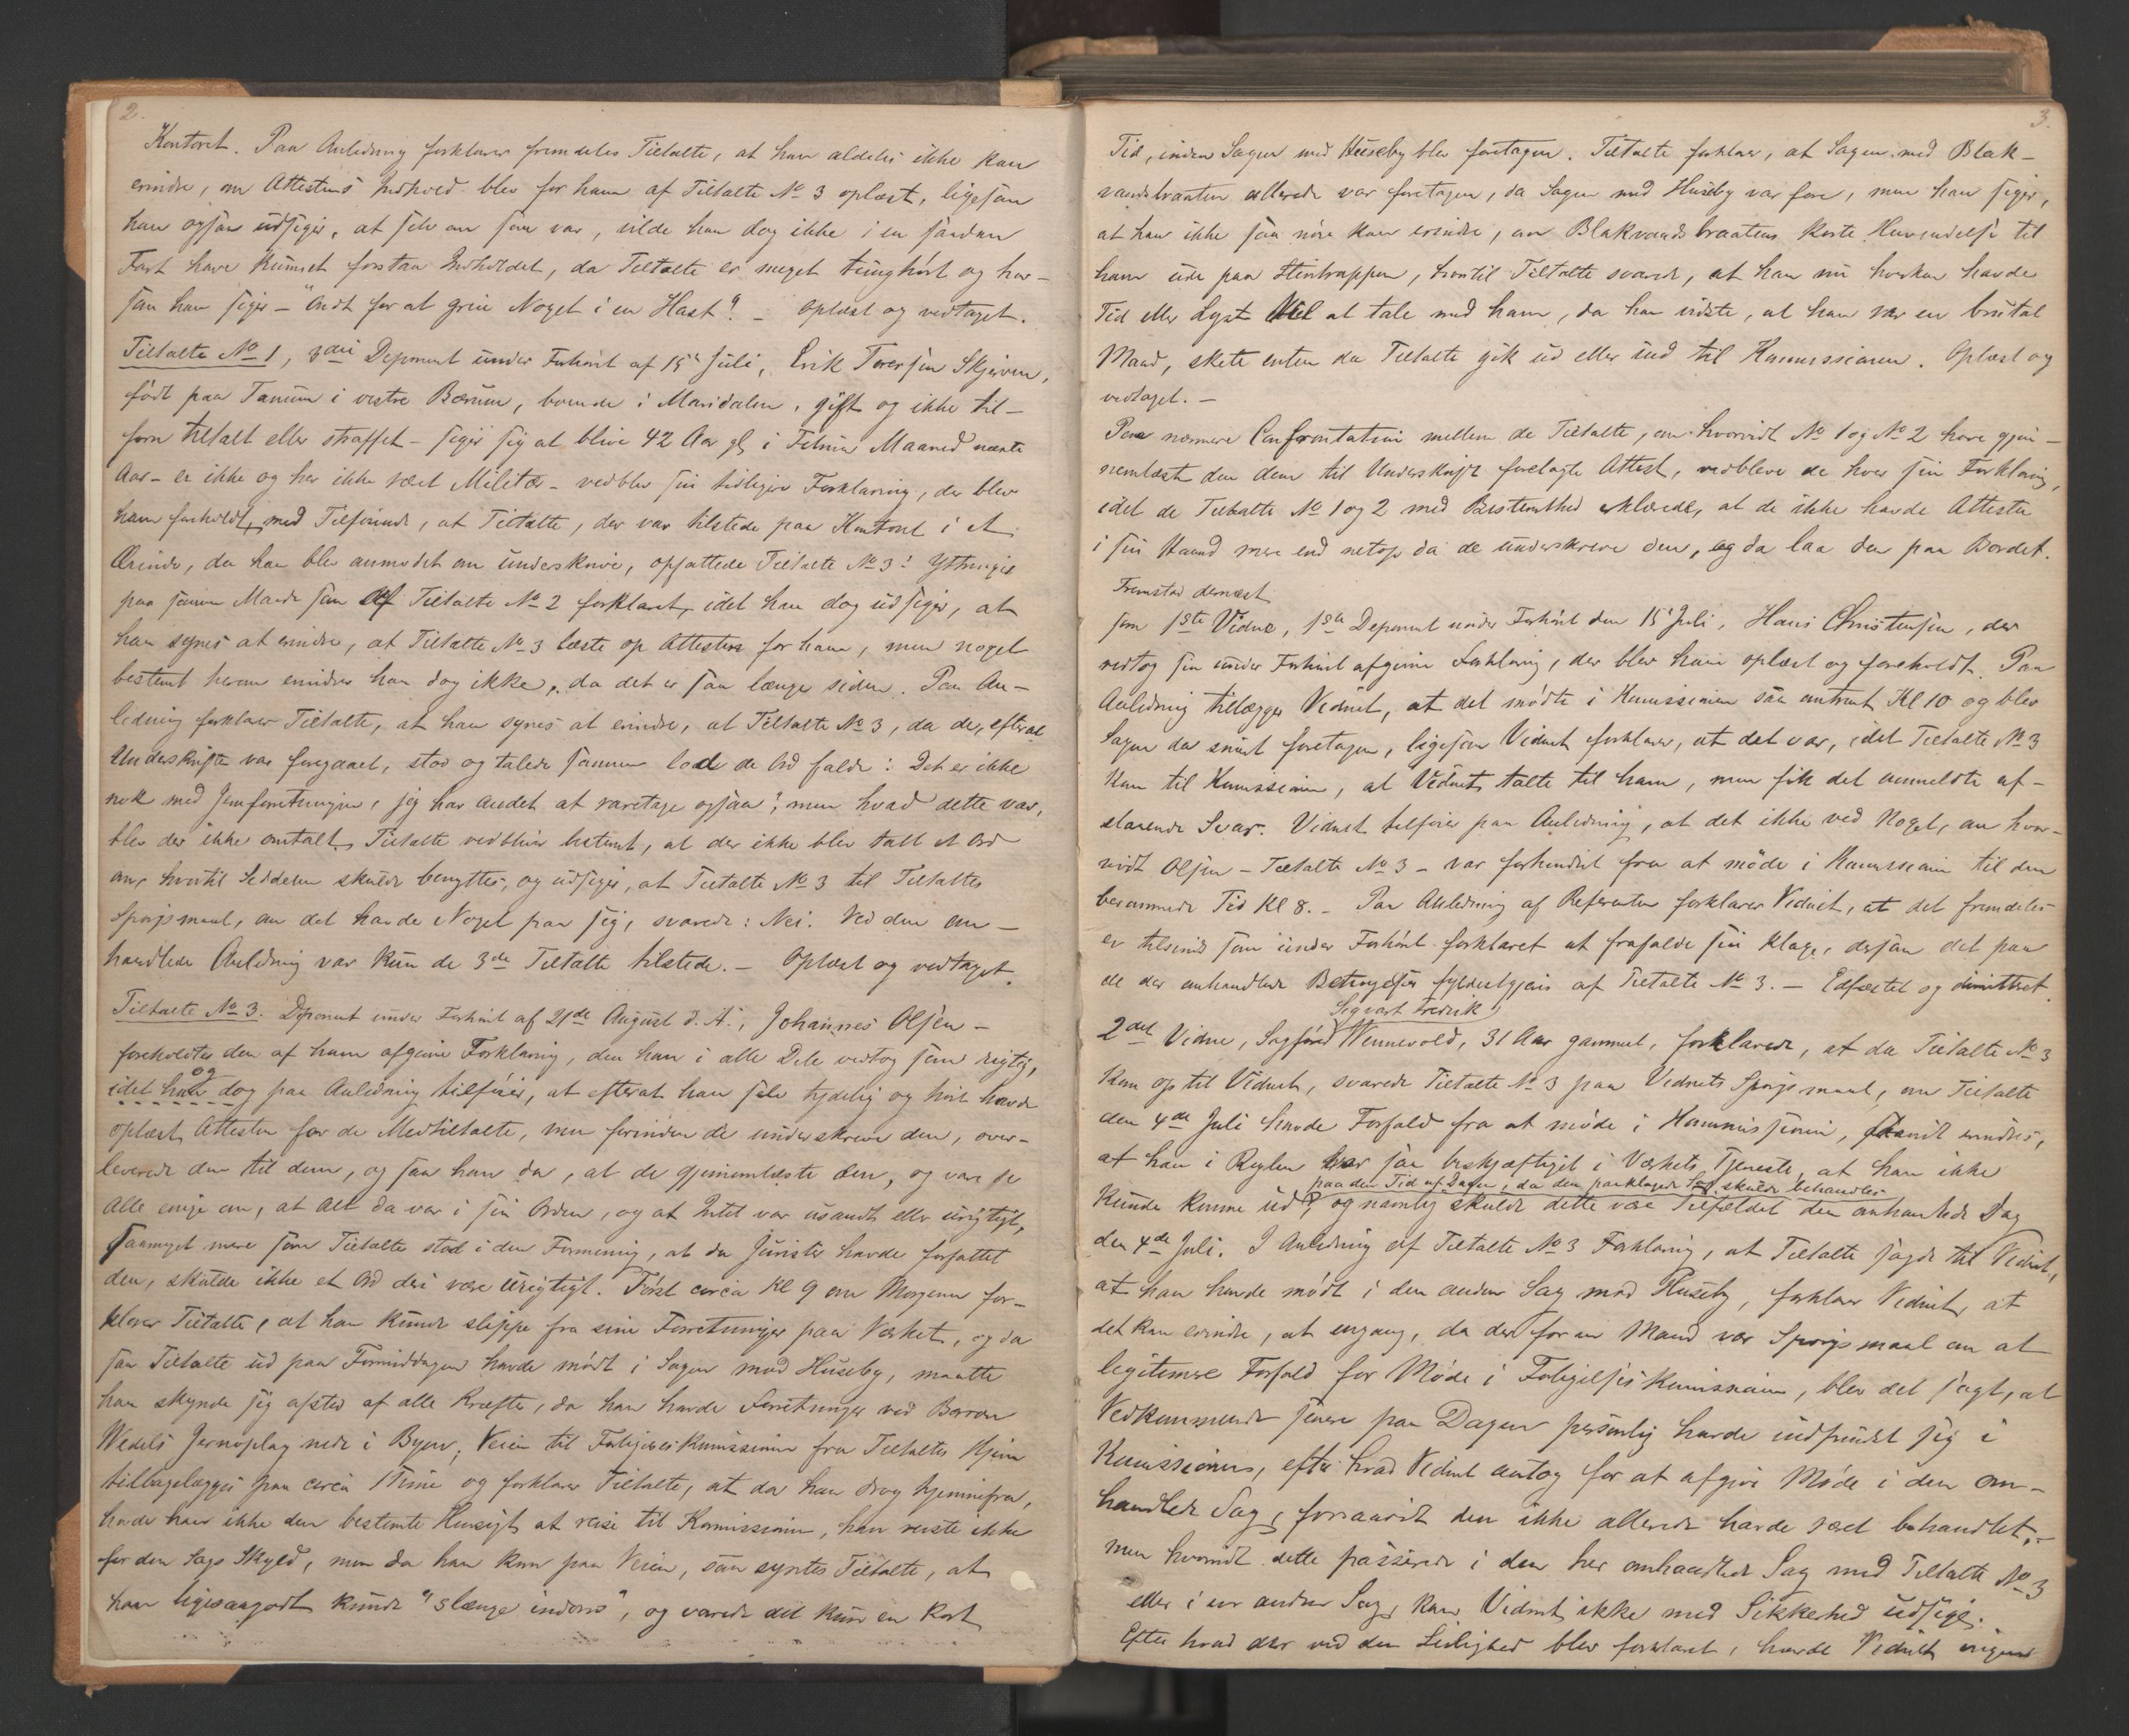 2.
Kontoret. Paa Anledning forklarer fremdeles Tiltalte, at han aldeles ikke kan
erindre, om Attestens Indhold blev for ham af Tiltalte No 3 oplæst, ligesom
han ogsaa udsiger, at selv om saa var, vilde han dog ikke i en saadan
Fart have kunnet forstaa Indholdet, da Tiltalte er meget tunghørt og har –
som han siger – "Ondt for at greie Noget i en Hast". – Oplæst og vedtaget.
Tiltalte No 1, 3die Deponent under Forhør af 15de Juli, Erik Toresen Skjerven,
født paa Tanum i vestre Bærum, boende i Maridalen, gift og ikke til-
forn tiltalt eller straffet – siger sig at blive 42 Aar gl i Februar Maaned næste
Aar – er ikke og har ikke været Militær – vedblev sin tidligere Forklaring, der blev
ham foreholdt, med Tilføiende, at Tiltalte, der var tilstede paa Kontoret i et
Ærinde, da han blev anmodet om underskrive, opfattede Tiltalte No 3's Yttringer
paa samme Maade som af Tiltalte No 2 forklaret, idet han dog udsiger, at
han synes at erindre, at Tiltalte No 3 læste op Attesten for ham, men noget
bestemt herom erindrer han dog ikke, da det er saa længe siden. Paa An-
ledning forklarer Tiltalte, at han synes at erindre, at Tiltalte No 3, da de, efterat
Underskriften var foregaaet, stod og talede sammen lod de Ord falde: Det er ikke
nok med Jernforretningen, jeg har andet at varetage ogsaa", men hvad dette var,
blev der ikke omtalt. Tiltalte vedbliver bestemt, at der ikke blev talt et Ord
om, hvortil Seddelen skulde benyttes, og udsiger, at Tiltalte No 3 til Tiltaltes
Spørgsmaal, om det havde Noget paa sig, svarede: Nei. Ved den om-
handlede Anledning var kun de 3de Tiltalte tilstede. – Oplæst og vedtaget.
Tiltalte No 3. Deponent under Forhør af 21de August d. A., Johannes Olsen –
foreholdtes den af ham afgivne Forklaring, den han i alle Dele vedtog som rigtig,
og
idet han dog paa Anledning tilføier, at efterat han selv tydelig og høit havde
oplæst Attesten for de Medtiltalte, men forinden de underskreve den, over-
leverede den til dem, og saa han da, at de gjennemlæste den, og vare de
Alle enige om, at Alt da var i sin Orden, og at Intet var usandt eller urigtigt,
saameget mere som Tiltalte stod i den Formening, at da Jurister havde forfattet
den, skulde ikke et Ord deri være urigtigt. Først circa Kl 9 om Morgenen for-
klarer Tiltalte, at han kunde slippe fra sine Forretninger paa Værket, og da
saa Tiltalte ud paa Formiddagen havde mødt i Sagen mod Huseby, maatte
han skynde sig afsted af alle Kræfter, da han havde Forretninger ved Baron
Wedels Jernoplag nede i Byen. Veien til Forligelseskommissionen fra Tiltaltes Hjem
tilbagelægges paa circa 1 Time og forklarer Tiltalte, at da han drog hjemmefra,
havde han ikke den bestemte Hensigt at reise til Kommissionen, han reiste ikke
for den Sags Skyld, men da han kom paa Veien, saa syntes Tiltalte, at
han ligesaagodt kunde "slænge indom", og varede det kun en kort
3.
Tid, inden Sagen med Huseby blev foretagen. Tiltalte forklarer, at Sagen med Blak-
vandsbraaten allerede var foretagen, da Sagen med Huseby var fore, men han siger,
at han ikke saa nøie kan erindre, om Blakvandsbraatens korte Henvendelse til
ham ude paa Stentrappen, hvortil Tiltalte svarede, at han nu hverken havde
Tid eller Lyst til at tale med ham, da han vidste, at han var en brutal
Mand, skete enten da Tiltalte gik ud eller ind til Kommissionen. Oplæst og
vedtaget. –
Paa nærmere Confrontation mellem de Tiltalte, om hvorvidt No 1 og No 2 have gjen-
nemlæst den dem til Underskrift forelagte Attest, vedbleve de hver sin Forklaring,
idet de Tiltalte No 1 og 2 med Bestemthed erklærede, at de ikke havde Attesten
i sin Haand mere end netop da de underskreve den, og da laa den paa Bordet.
Fremstod dernæst
som 1ste Vidne, 1ste Deponent under Forhør den 15 Juli, Hans Christensen, der
vedtog sin under Forhøret afgivne Forklaring, der blev ham oplæst og foreholdt. Paa
Anledning tillægger Vidnet, at det mødte i Kommissionen saa omtrent Kl 10 og blev
Sagen da snart foretagen, ligesom Vidnet forklarer, at det var, idet Tiltalte No 3
kom til Kommissionen, at Vidnet talte til ham, men fik det anmeldte af-
slaaende Svar. Vidnet tilføier paa Anledning, at det ikke ved Noget, om hvor-
vidt Olsen – Tiltalte No 3 – var forhindret fra at møde i Kommissionen til den
berammede Tid Kl 8. – Paa Anledning af Referenten forklarer Vidnet, at det fremdeles
er tilsinds som under Forhøret forklaret at frafalde sin Klage, dersom det paa
de der omhandlede Betingelser fyldestgjøres af Tiltalte No 3. – Edfæstet og dimitteret.
Sigvart Fredrik
2det Vidne, Sagfører Wennevold, 31 Aar gammel, forklarede, at da Tiltalte No 3
kom op til Vidnet, svarede Tiltalte No 3 paa Vidnets Spørgsmaal, om Tiltalte
den 4de Juli havde Forfald fra at møde i Kommissionen, saavidt erindres,
at han i Reglen var saa beskjæftiget i Værkets Tjeneste, at han ikke
paa den Tid af Dagen, da den paaklagede Sag skulde behandles
kunde komme ud, og navnlig skulde dette være Tilfældet den omhandlede Dag
den 4de Juli. I Anledning af Tiltalte No 3 Forklaring, at Tiltalte sagde til Vidnet,
at han havde mødt i den anden Sag mod Huseby, forklarer Vidnet, at
det kan erindre, at engang, da der for en Mand var Spørgsmaal om at
legitimere Forfald for Møde i Forligelseskommissionen, blev det sagt, at
Vedkommende senere paa Dagen personlig havde indfundet sig i
Kommissionen, efter hvad Vidnet antog for at afgive Møde i den om-
handlede Sag, forsaavidt den ikke allerede havde været behandlet, –
men hvorvidt dette passerede i den her omhandlede Sag med Tiltalte No 3
eller i en anden Sag, kan Vidnet ikke med Sikkerhed udsige.
Efter hvad der ved den Leilighed blev forklaret, havde Vidnet ingen